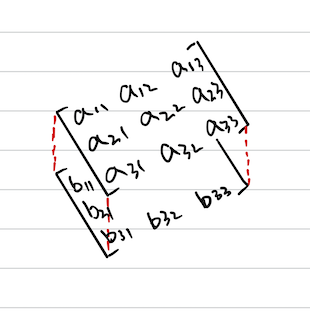 a11 a12 a13
a21 a22 a23
a31 a32 a33
b11
b21
b31 b32 b33